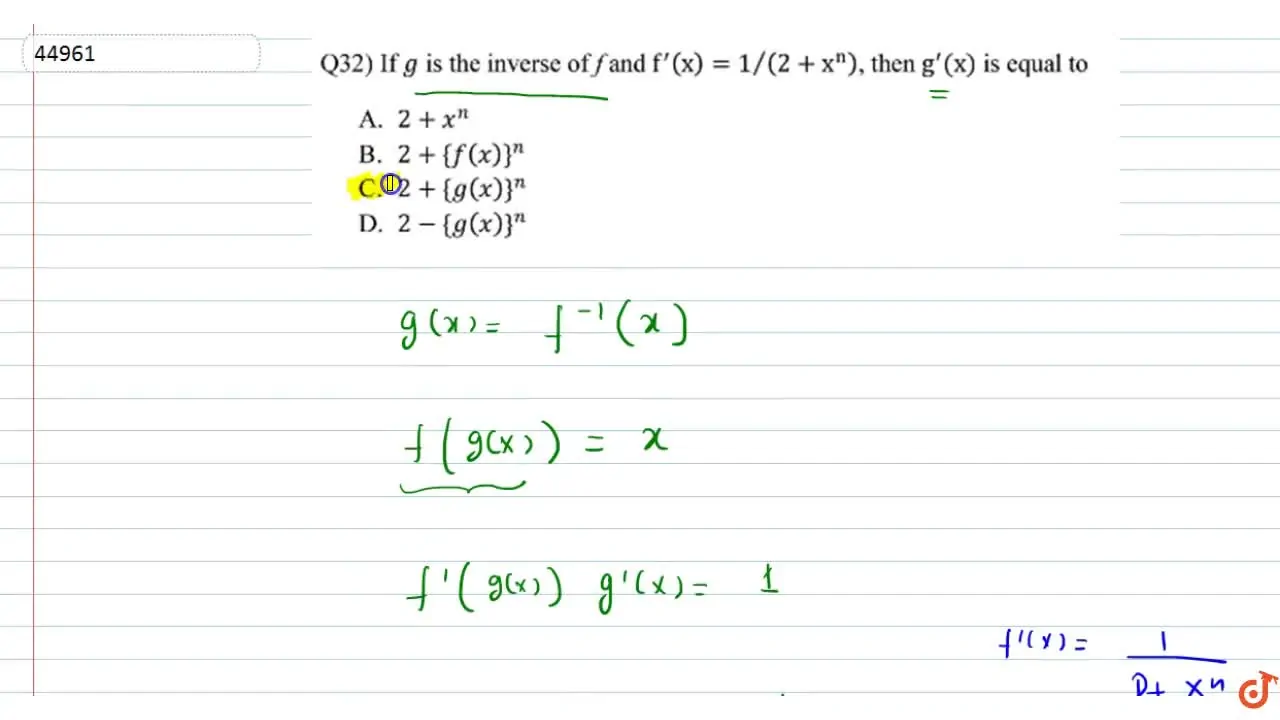 44961
Q32) If g is the inverse of f and f′(x) = 1/(2 + xⁿ), then g′(x) is equal to
A. 2 + xⁿ
B. 2 + {f(x)}ⁿ
C. 2 + {g(x)}ⁿ
D. 2 − {g(x)}ⁿ
g(x) = f⁻¹(x)
f(g(x)) = x
f'(g(x)) g'(x) = 1
f'(x) = 1
+ xⁿ